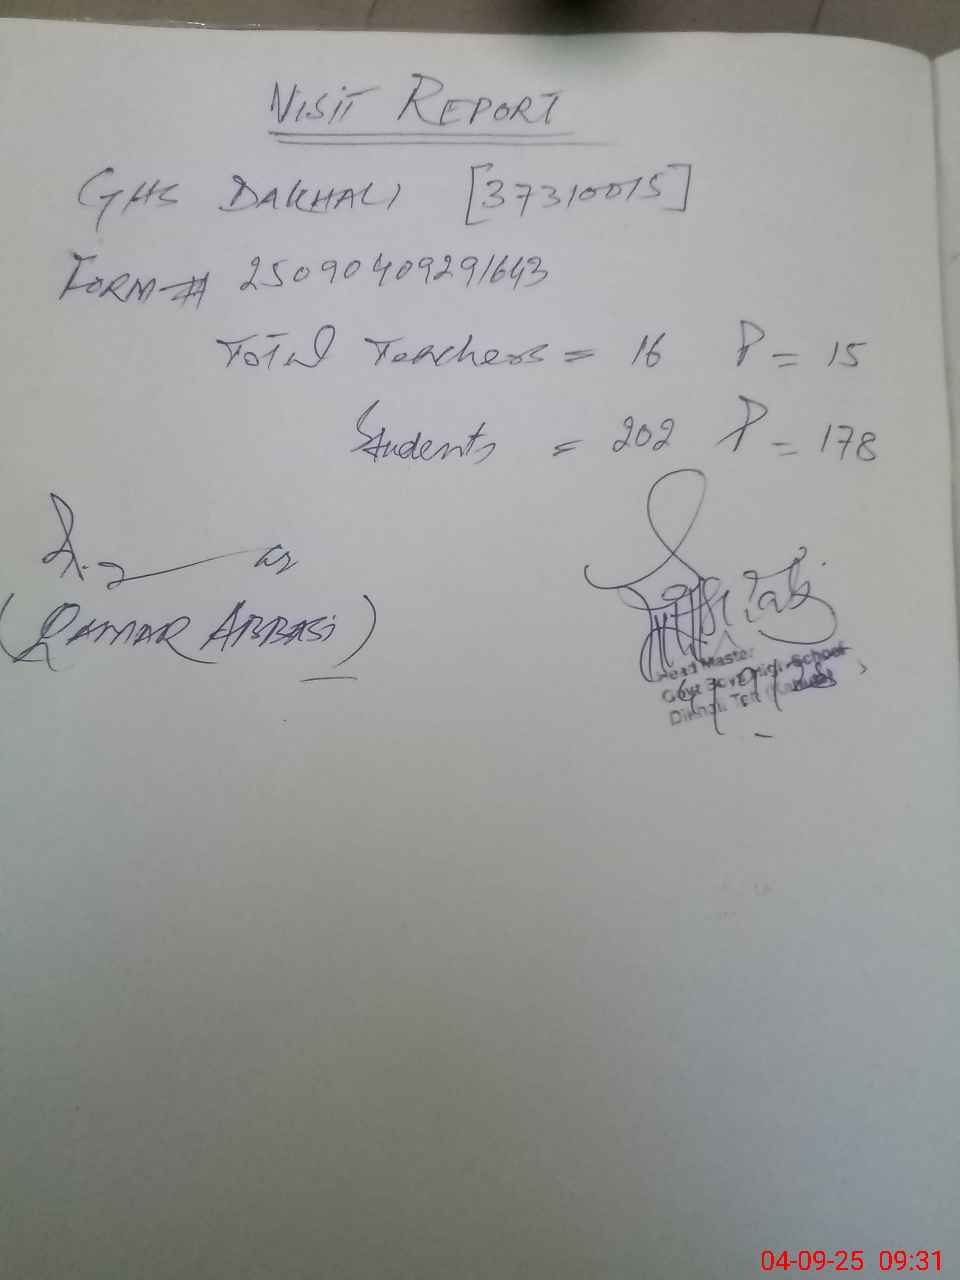 VISIT REPORT
GHS DAKHALI [37310015]
FORM-# 25090409291643
Total Teachers = 16 P = 15
Students = 202 P = 178
(QAMAR ABBASI)
Head Master
04-09-25 09:31